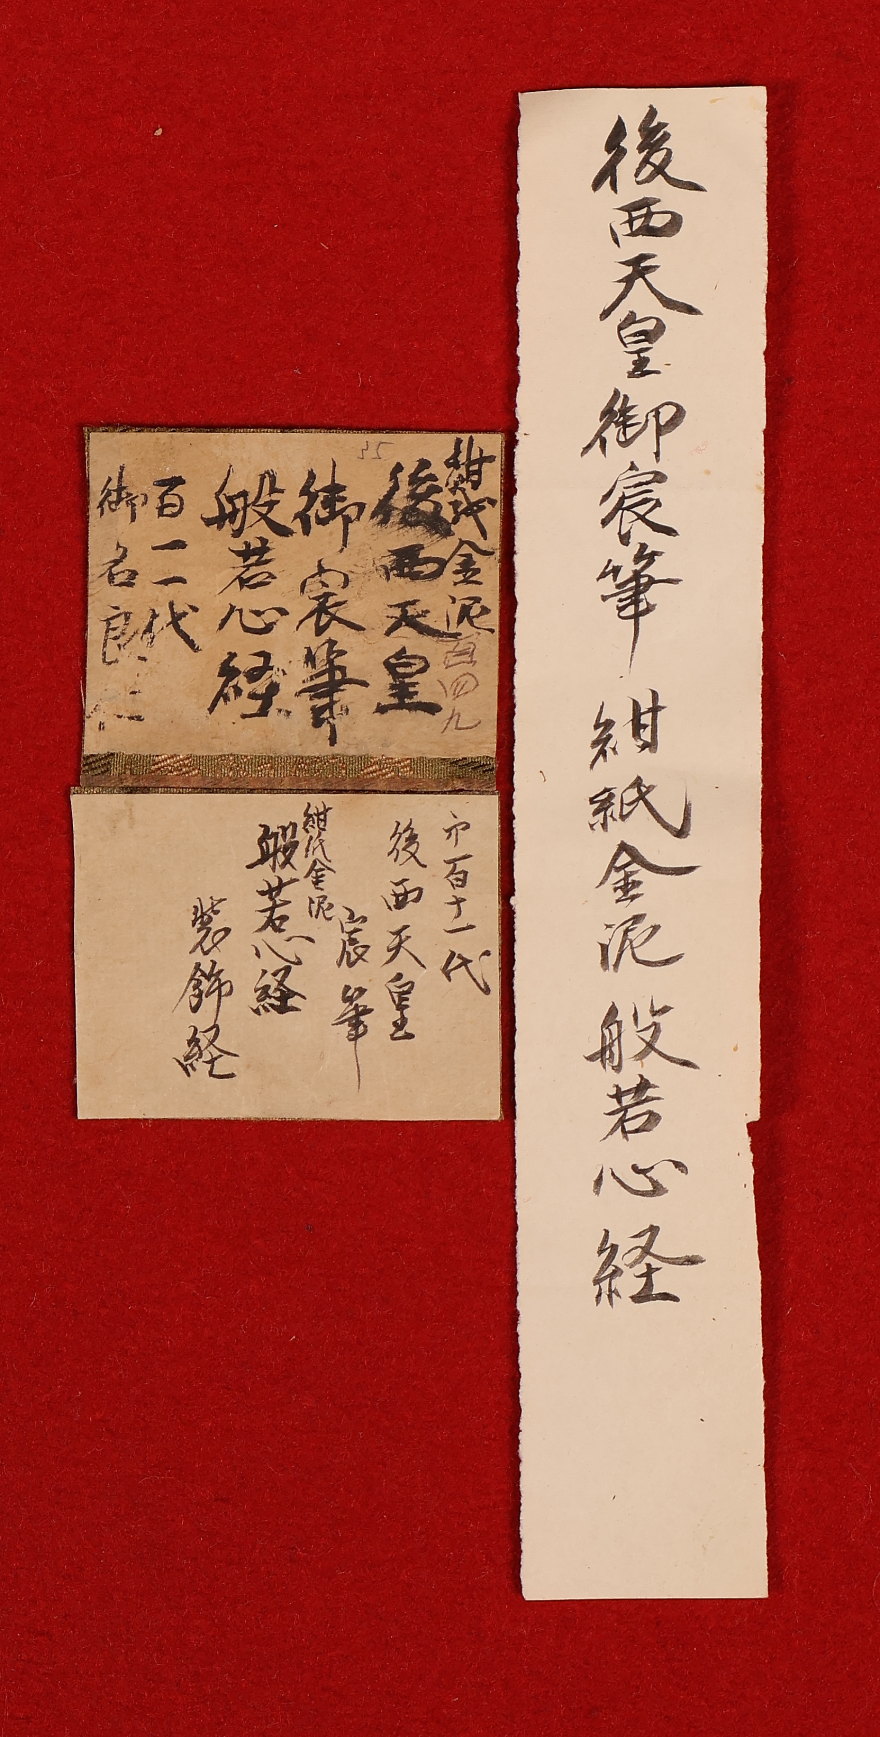 後西天皇御宸筆 紺紙金泥 般若心経
紺紙金泥
百四九
35
後西天皇
御宸筆
般若心経
百一二代
御名良仁
才百十一代
後西天皇
宸筆
紺紙金泥
般若心経
装飾経